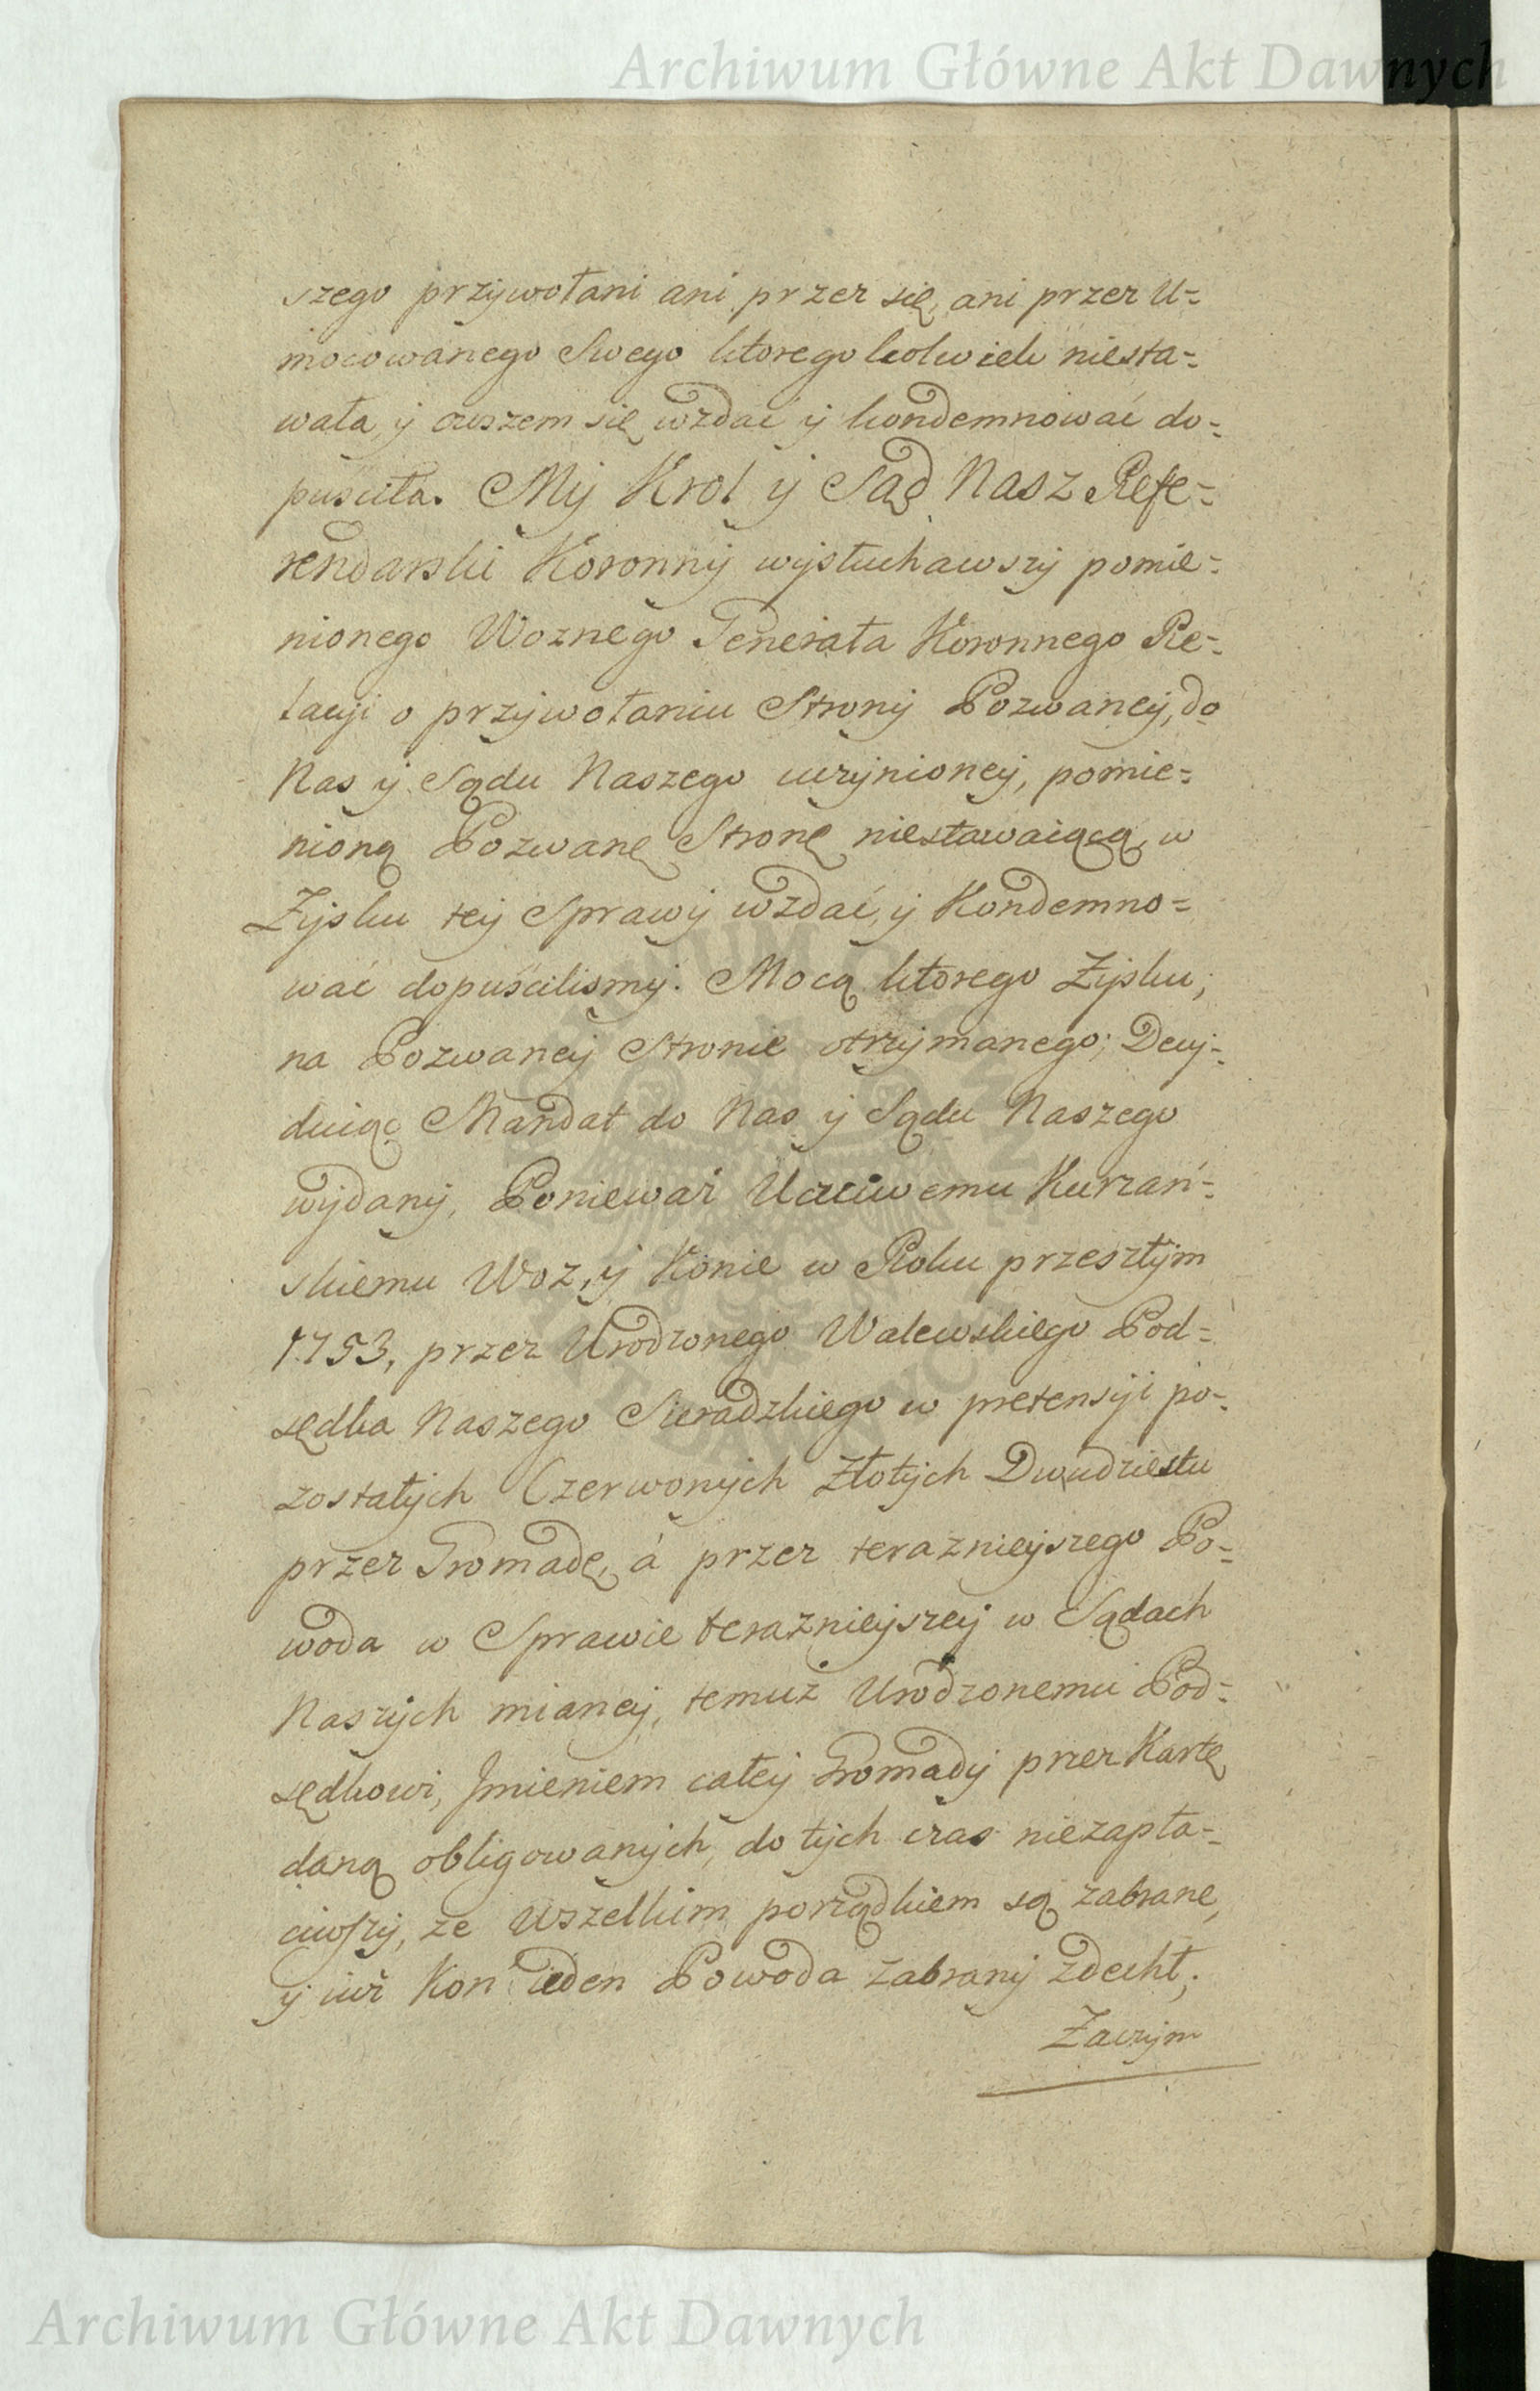 Archiwum Główne Akt Dawnych
szego przywołani ani przez się, ani przez U=
mocowanego Swego ktoregokolwiek niesta=
wała, y owszem się wzdać y kondemnować do=
puściła. My Krol y Sąd Nasz Refe=
rendarski Koronny wysłuchawszy pomie=
nionego Woznego Generała Koronnego Re=
lacyi o przywołaniu Strony Pozwaney, do
Nas y Sądu Naszego uczynioney, pomie=
nioną Pozwanę Stronę niestawaiącą, w
Zysku tey Sprawy wzdać, y Kondemno=
wać dopuścilismy. Mocą ktorego Zysku,
na Pozwaney Stronie otrzymanego; Decy=
duiąc Mandat do Nas y Sądu Naszego
wydany, Poniewaź Uczciwemu Kurzań=
skiemu Woz, y Konie w Roku przeszłym
1753, przez Urodzonego Walewskiego Pod=
sędka Naszego Sieradzkiego w pretensyi po=
zostałych Czerwonych Złotych Dwudziestu
przez Gromadę, á przez teraznieyszego Po=
woda w Sprawie teraznieyszey w Sądach
Naszych mianey, temuż Urodzonemu Pod=
sędkowi, Jmieniem całey Gromady przez Kartę
daną obligowanych, do tych czas niezapła=
ciwszy, ze wszelkim porządkiem są zabrane,
y iuż Koń ieden Powoda zabrany zdechł;
Zaczym
Archiwum Główne Akt Dawnych